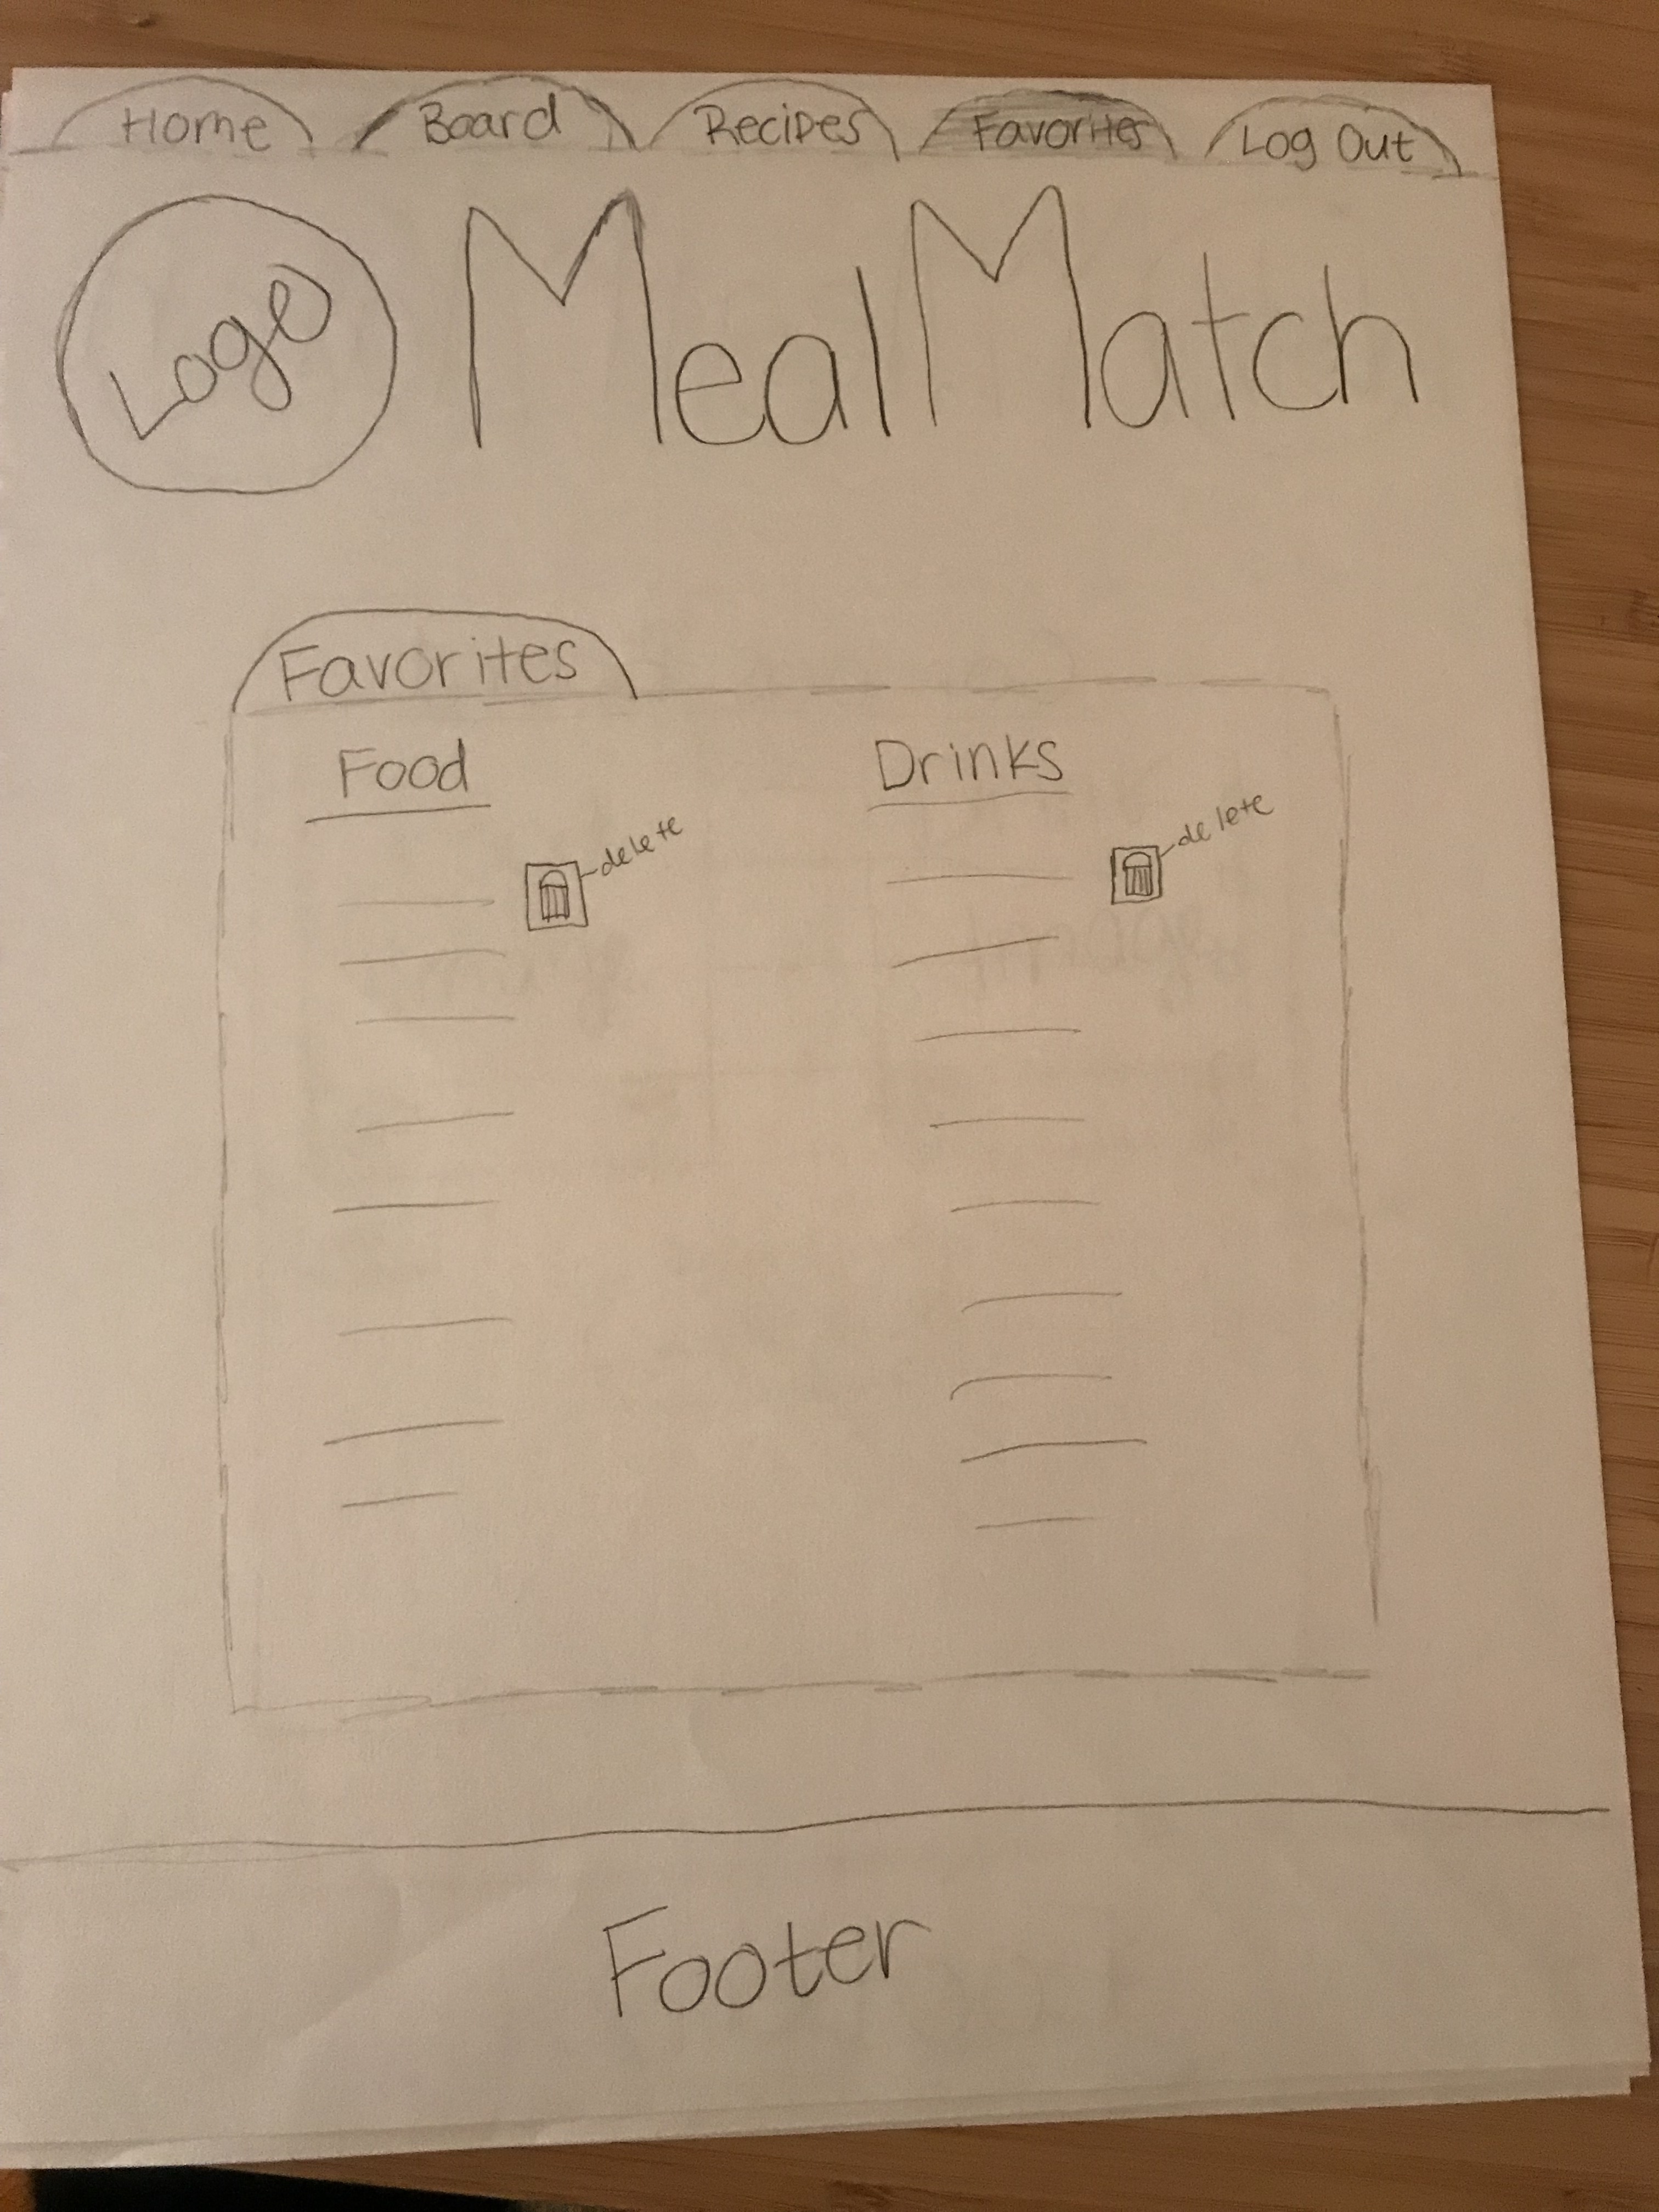 Home Board Recipes Favorites Log Out
Logo MealMatch
Favorites
Food Drinks
delete delete
Footer